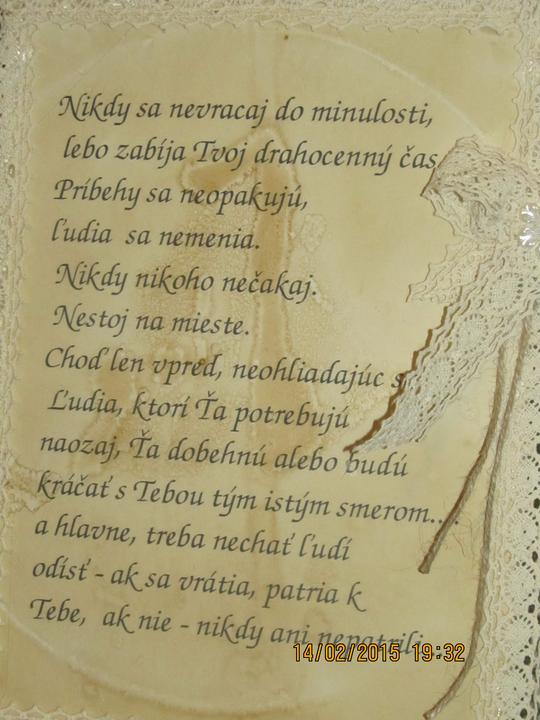 Nikdy sa nevracaj do minulosti,
lebo zabíja Tvoj drahocenný čas
Príbehy sa neopakujú,
ľudia sa nemenia.
Nikdy nikoho nečakaj.
Nestoj na mieste.
Choď len vpred, neohliadajúc
Ľudia, ktorí Ťa potrebujú
naozaj, Ťa dobehnú alebo budú
kráčať s Tebou tým istým smerom...
a hlavne, treba nechať ľudí
odísť - ak sa vrátia, patria k
Tebe, ak nie - nikdy ani nepatrili
14/02/2015 19:32